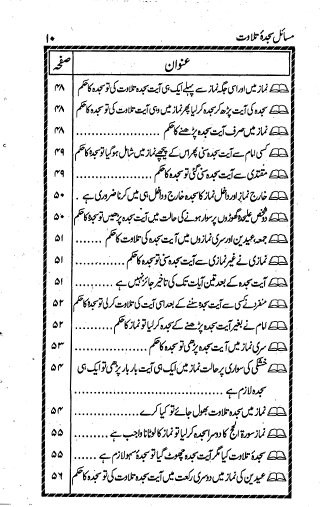 مسائل سجدۂ تلاوت ۱۰
عنوان صفحہ
نماز میں اور اسی جگہ نماز سے پہلے ایک ہی آیت سجدہ تلاوت کی تو سجدہ کا حکم ۴۸
سجدہ کی آیت پڑھ کر سجدہ کر لیا پھر نماز میں وہی آیت سجدہ تلاوت کی تو سجدہ کا حکم ۴۸
نماز میں صرف آیت سجدہ پڑھنے کا حکم ۴۸
کسی امام سے آیت سجدہ سنی پھر اس کے پیچھے نماز میں شامل ہو گیا تو سجدہ کا حکم ۴۹
مقتدی سے آیت سجدہ سنی گئی تو سجدہ کا حکم ۴۹
خارج نماز اور داخل نماز کا سجدہ خارج و داخل ہی میں کرنا ضروری ہے ۵۰
دو شخص علیحدہ گھوڑوں پر سوار ہونے کی حالت میں آیت سجدہ پڑھیں تو سجدہ کا حکم ۵۰
جمعہ عیدین اور سری نمازوں میں آیت سجدہ کی تلاوت کا حکم ۵۱
نمازی نے غیر نمازی سے آیت سجدہ سنی تو سجدہ کا حکم ۵۱
آیت سجدہ کے بعد تین آیات تک کی تاخیر جائز نہیں ہے ۵۱
منفرد نے کسی سے آیت سجدہ سننے کے بعد اسی آیت کی تلاوت کر لی تو سجدہ کا حکم ۵۲
امام نے بغیر آیت سجدہ پڑھنے کے سجدہ کر لیا تو نماز کا حکم ۵۲
سری نماز میں آیت سجدہ پڑھی تو سجدہ کا حکم ۵۳
خشکی کی سواری پر حالت نماز میں ایک ہی آیت بار بار پڑھی تو ایک ہی ۵۴
سجدہ لازم ہے
نماز میں سجدہ تلاوت بھول جائے تو کیا کرے ۵۴
نماز سورۃ الحج کا دوسرا سجدہ کر لیا تو نماز کا لوٹانا واجب ہے ۵۵
سجدۂ تلاوت کیا مگر آیت سجدہ چھوٹ گیا تو سجدۂ سہو لازم ہے ۵۵
عیدین کی نماز میں دوسری رکعت میں آیت سجدہ کی تلاوت کی تو سجدہ کا حکم ۵۶